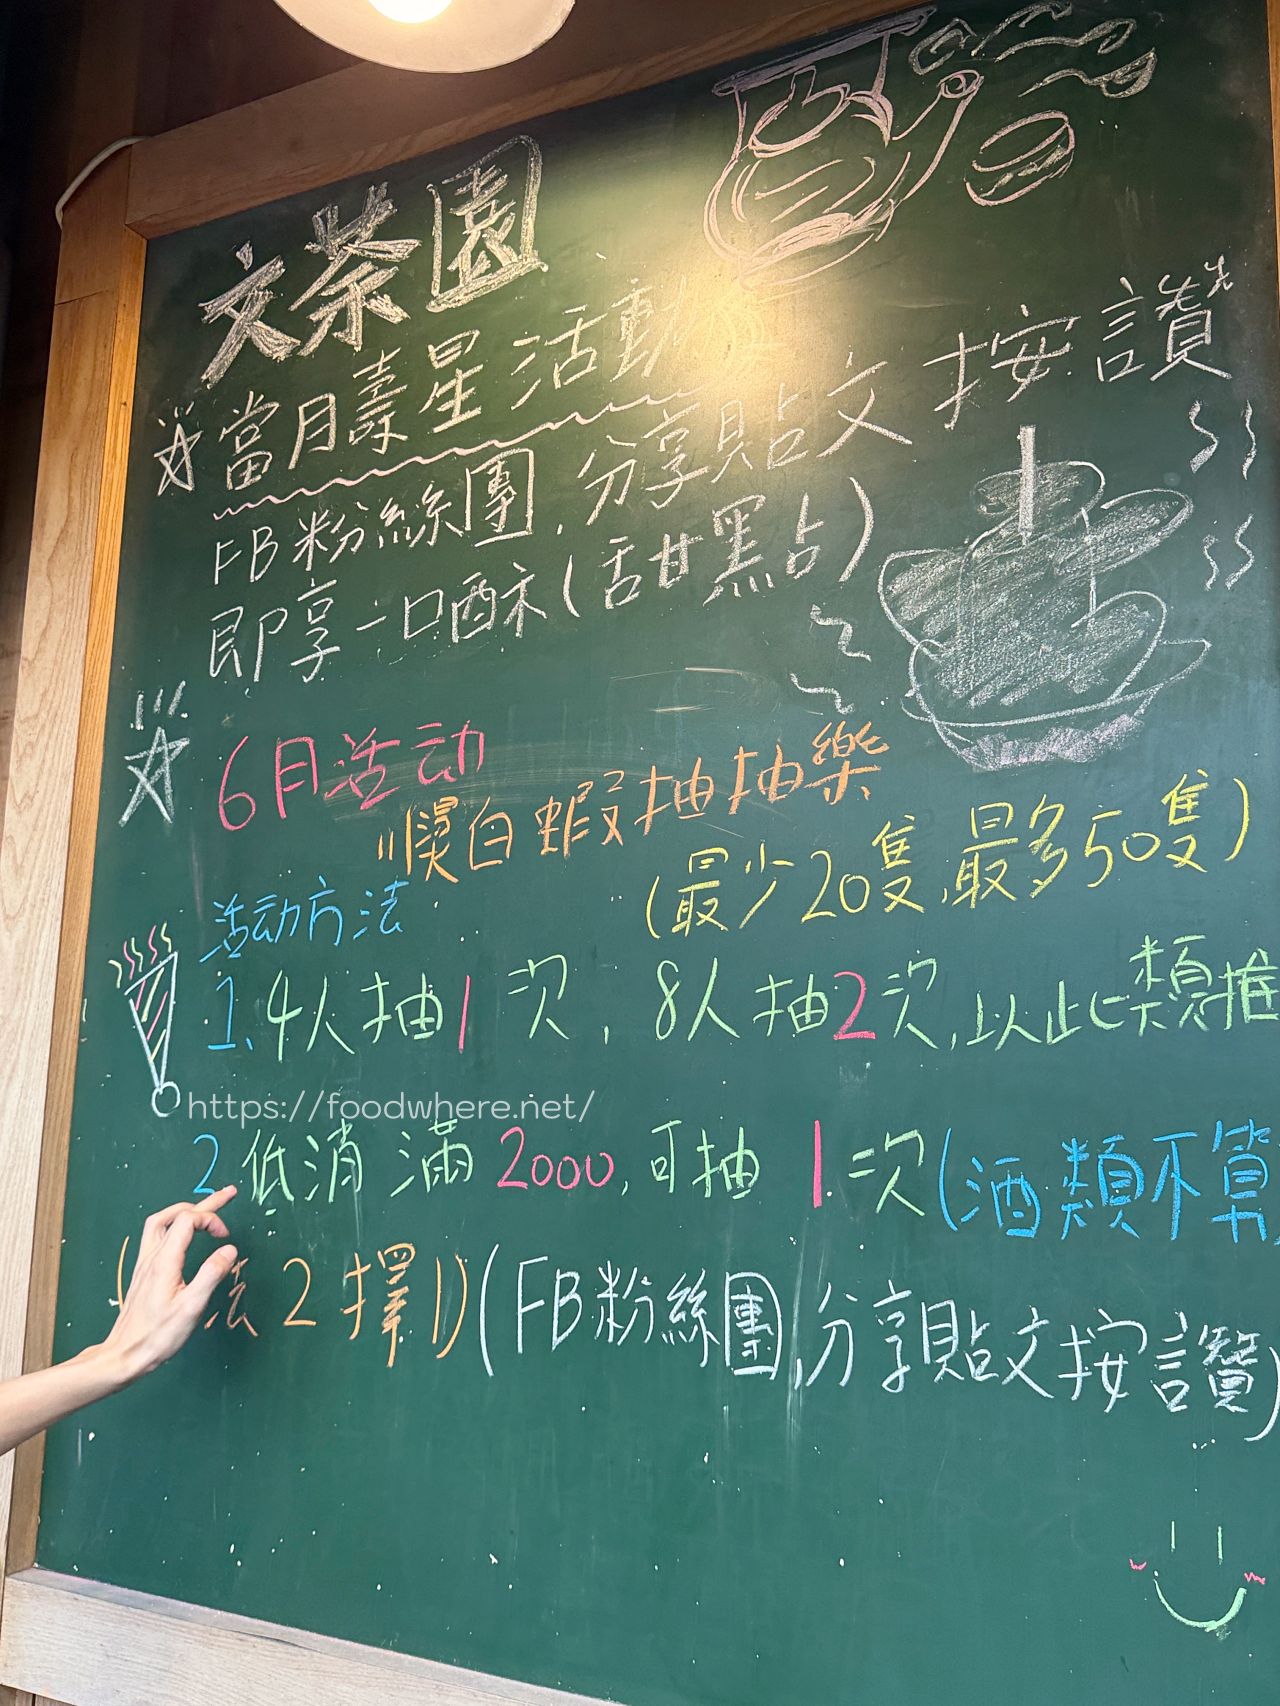 文茶園
當月壽星活動
FB粉絲團,分享貼文按讚
即享一口酥(甜點)
6月活动
川燙白蝦抽抽樂
(最少20隻,最多50隻)
活动方法
1、4人抽1次,8人抽2次,以此類推
https://foodwhere.net/
2、低消滿2000,可抽1次(酒類不算
法2擇1)(FB粉絲團,分享貼文按讚)